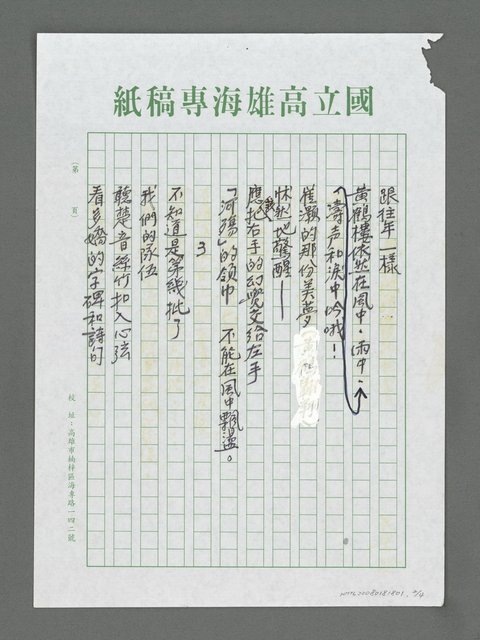 國立高雄海專稿紙
跟往年一樣
黃鶴樓依然在風中,雨中,
「濤声和淚中吟哦!
崔灝的那份美夢
怵然地驚醒——
應我把右手的幻覺交給左手
「河殤」的領巾 不能在風中飄盪。
3
不知道是第幾批了
我們的隊伍
聽楚音絲竹扣入心弦
看多嬌的字碑和詩句
(第 頁)
校址:高雄市楠梓區海專路一四二號